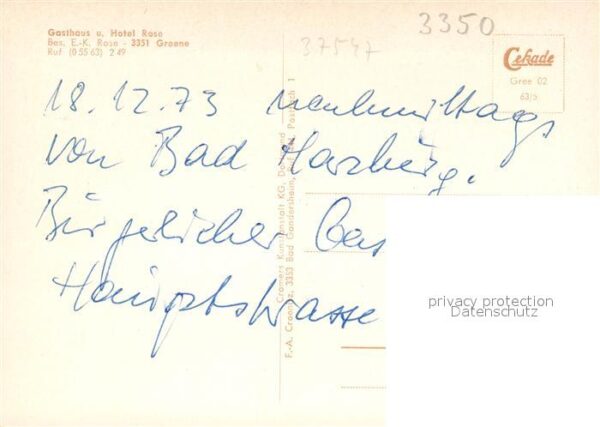 Gasthaus u. Hotel Rose
Bes. E.-K. Rose - 3351 Greene
Ruf (0 55 63) 2 49
3350
37547
Cekade
Gree 02
63/5
18.12.73 nachmittags
von Bad Harzburg.
Bürgerlicher Gas
Hauptstrasse
Cramers Kunstanstalt KG, Dortmund
F.-A. 3353 Bad Gandersheim, Postfach 1
privacy protection
Datenschutz